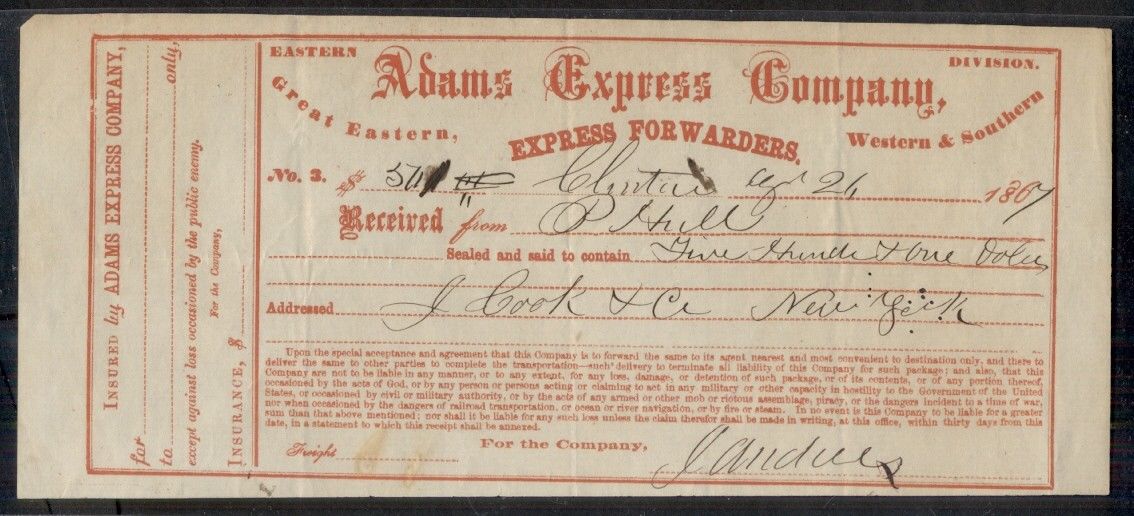 INSURED by ADAMS EXPRESS COMPANY,
for
to only,
except against loss occasioned by the public enemy.
For the Company,
INSURANCE, $
EASTERN DIVISION.
Adams Express Company,
Great Eastern, Western & Southern
EXPRESS FORWARDERS.
No. 3. $ Clinton 26 1867
Received from P Hull
Sealed and said to contain Five Hundr & one Dolrs
Addressed J Cook & Co New York
Upon the special acceptance and agreement that this Company is to forward the same to its agent nearest and most convenient to destination only, and there to
deliver the same to other parties to complete the transportation—such delivery to terminate all liability of this Company for such package; and also, that this
Company are not to be liable for any manner, or to any extent, for any loss, damage, or detention of such package, or of its contents, or of any portion thereof,
occasioned by the acts of God, or by any person or persons acting or claiming to act in any military or other capacity in hostility to the Government of the United
States, or occasioned by civil or military authority, or by the acts of any armed or other mob or riotous assemblage, piracy, or the dangers incident to a time of war,
nor when occasioned by the dangers of railroad transportation, or ocean or river navigation, or by fire or steam. In no event is this Company to be liable for a greater
sum than that above mentioned; nor shall it be liable for any such loss unless the claim therefor shall be made in writing, at this office, within thirty days from this
date, in a statement to which this receipt shall be annexed.
For the Company,
Freight J Andrews